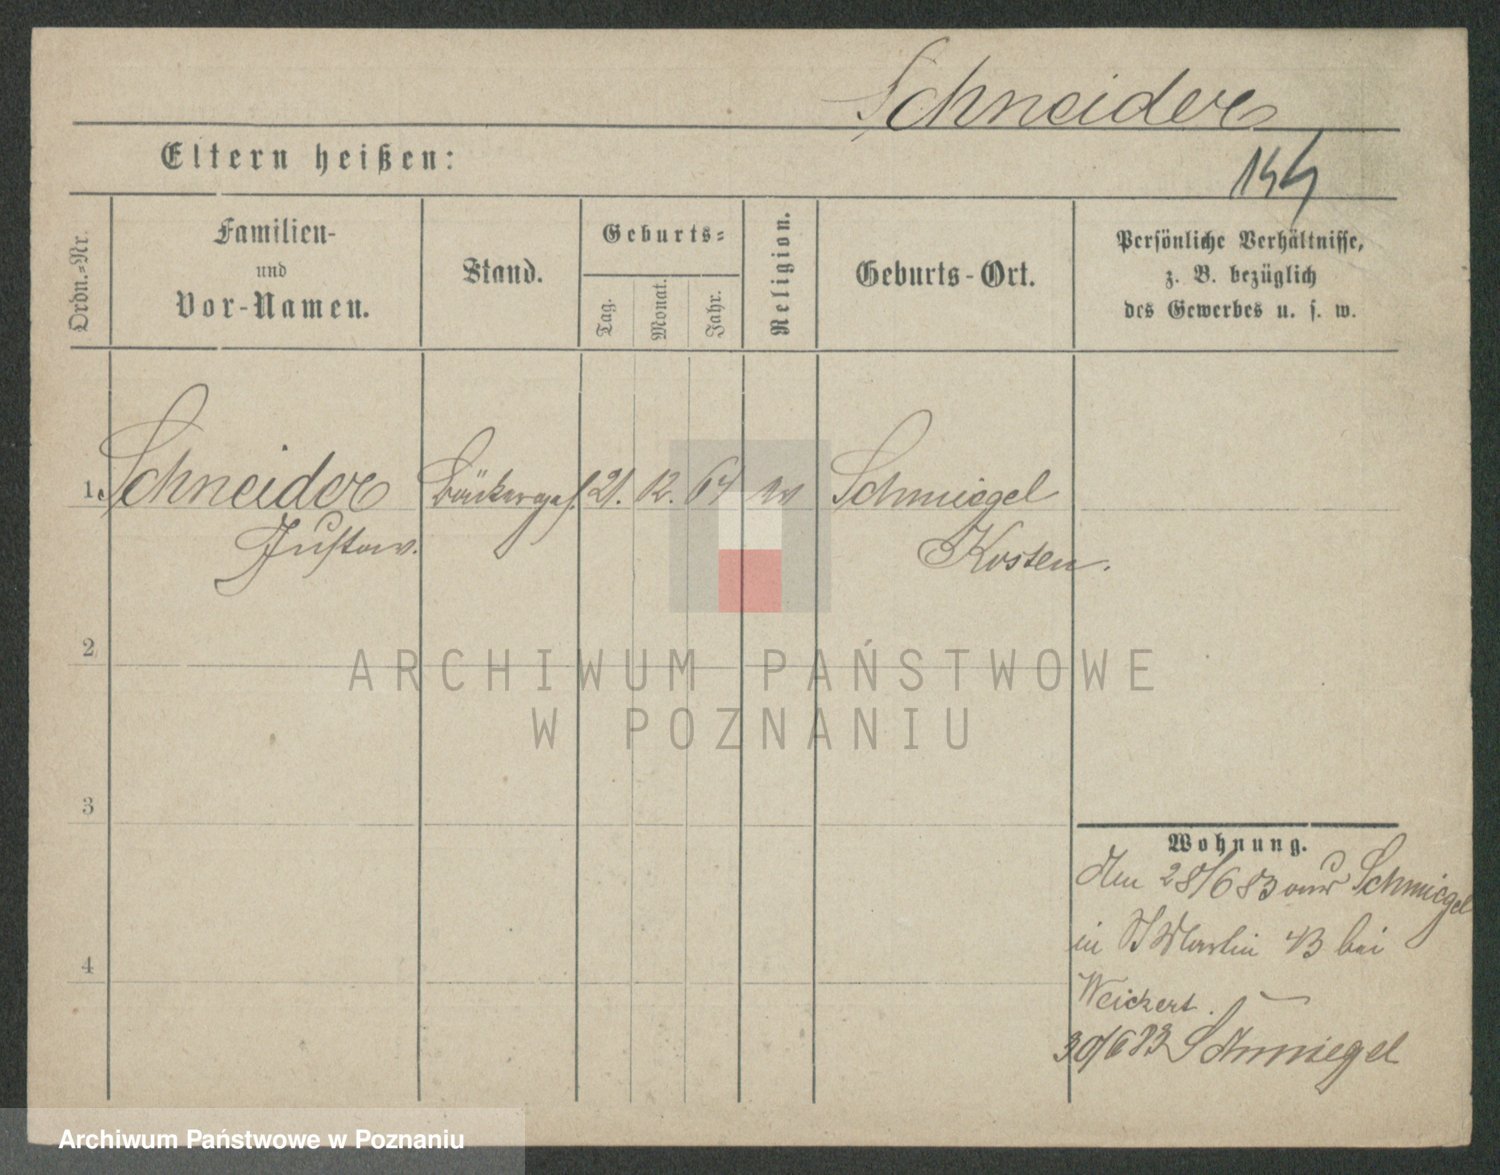 Schneider
Eltern heißen:
144
Ordn.-Nr.
Familien-
und
Vor-Namen.
Stand.
Geburts-
Tag.
Monat.
Jahr.
Religion.
Geburts-Ort.
Persönliche Verhältnisse,
z. B. bezüglich
des Gewerbes u. s. w.
1. Schneider Bäckerges. 21. 12. 64 ev Schmiegel
Gustav. Kosten.
2
3
4
Wohnung.
Am 28/6 83 aus Schmiegel
in St Martin 43 bei
Weickert.
30/6 83 Schmiegel
ARCHIWUM PAŃSTWOWE
W POZNANIU
Archiwum Państwowe w Poznaniu